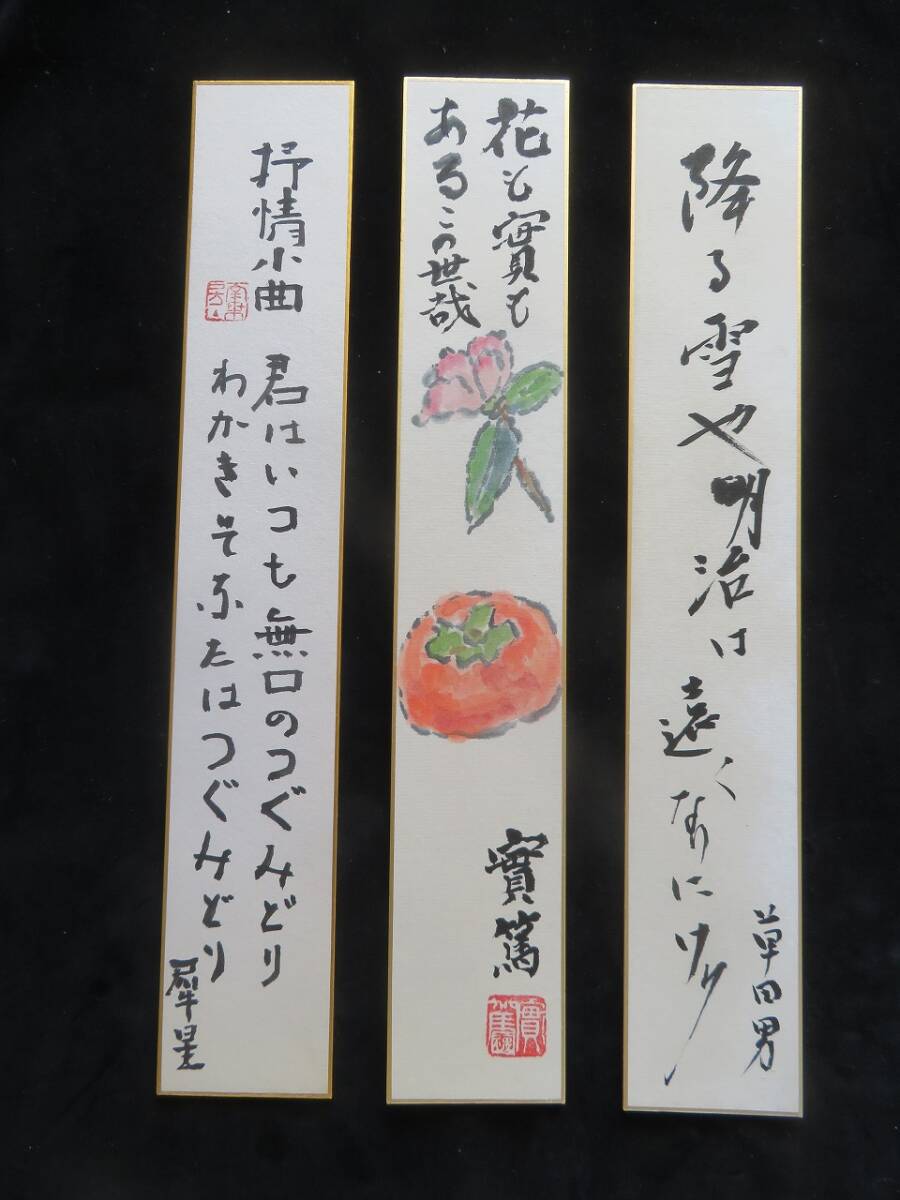 降る雪や明治は遠くなりにけり
草田男
花も實も
あるこの世哉
實篤
實篤
抒情小曲
君はいつも無口のつぐみどり
わかきそなたはつぐみどり
犀星